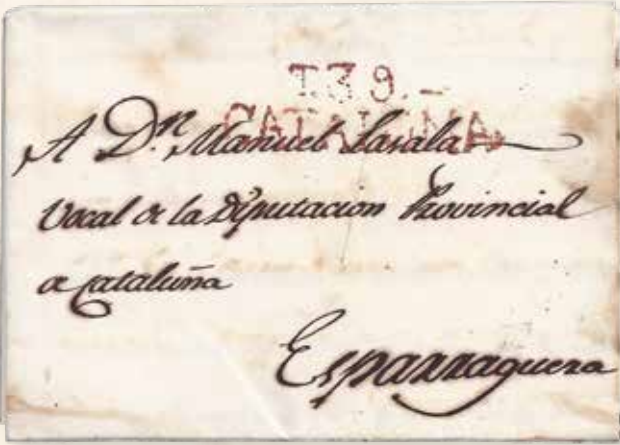 T.39.-
CATALUÑA
A D.ⁿ Manuel Lasala
Vocal de la Diputacion Provincial
de Cataluña
Esparraguera